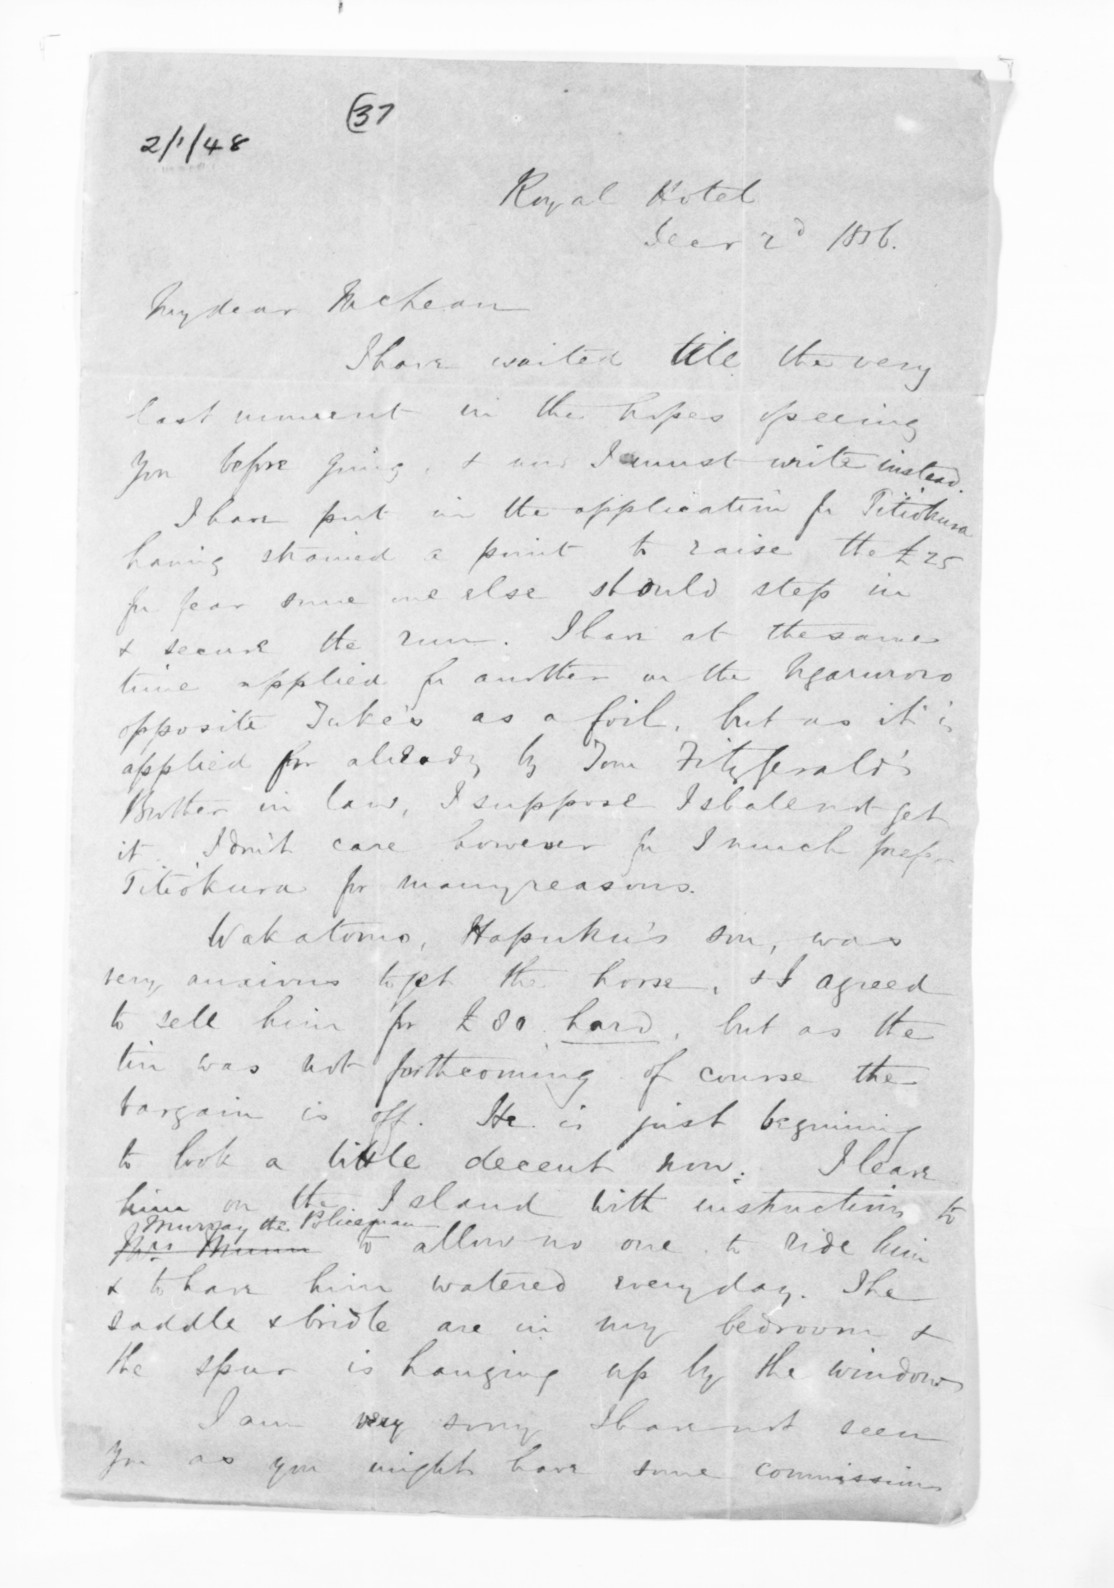 (37
2/1/48
Royal Hotel
Decr 2d 1856.
My dear McLean
I have waited till the very
last moment in the hopes of seeing
you before going, & now I must write instead.
I have put in the application for Titiokura
having strained a point to raise the £25
for fear some one else should step in
& secure the run. I have at the same
time applied for another on the Ngaruroro
opposite Tuke's as a foil, but as it is
applied for already by Tom Fitzgerald's
Brother in law, I suppose I shall not get
it. I don't care however for I much prefer
Titiokura for many reasons.
Wakatomo, Hapuku's son, was
very anxious to get the horse, & I agreed
to sell him for £80 hard, but as the
tin was not forthcoming of course the
bargain is off. He is just beginning
to look a little decent now. I leave
him on the Island with instructions to
Murray the Policeman
Mrs Munn to allow no one to ride him
& to have him watered every day. The
saddle & bridle are in my bedroom &
the spur is hanging up by the window
I am very sorry I have not seen
you as you might have some commissions